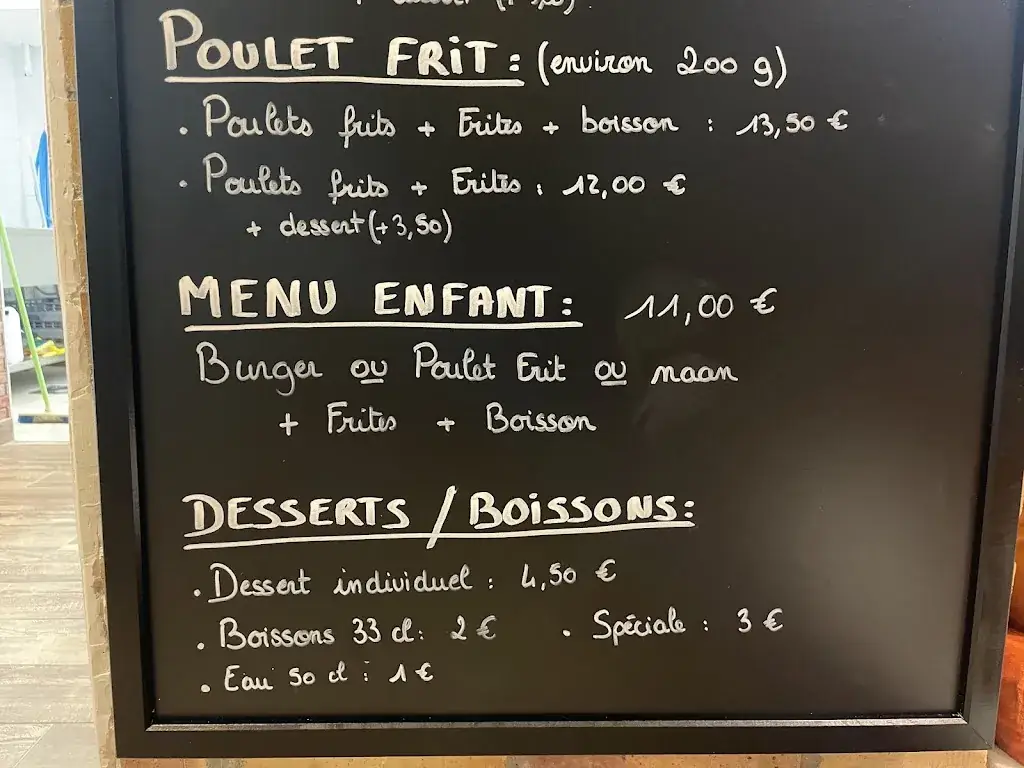 POULET FRIT : (environ 200 g)
. Poulets frits + Frites + boisson : 13,50 €
. Poulets frits + Frites : 12,00 €
+ dessert (+3,50)
MENU ENFANT : 11,00 €
Burger ou Poulet Frit ou naan
+ Frites + Boisson
DESSERTS / BOISSONS :
. Dessert individuel : 4,50 €
. Boissons 33 cl : 2 € . Spéciale : 3 €
. Eau 50 cl : 1 €